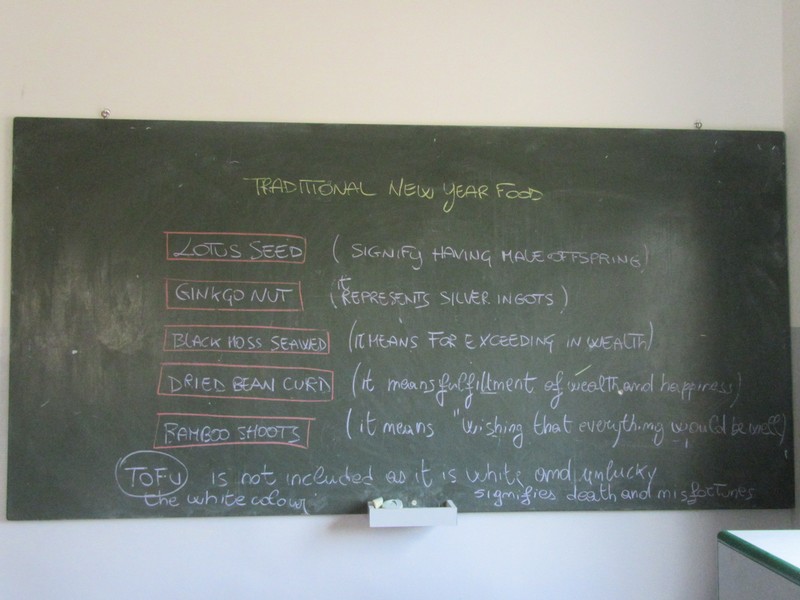 TRADITIONAL NEW YEAR FOOD
LOTUS SEED (SIGNIFY HAVING MALE OFFSPRING)
GINKGO NUT (it REPRESENTS SILVER INGOTS)
BLACK MOSS SEAWED (IT MEANS FOR EXCEEDING IN WEALTH)
DRIED BEAN CURD (it means fulfiltment of wealth and happiness)
BAMBOO SHOOTS (it means "wishing that everything would be well)
TOFU is not included as it is white and unlucky
the white colour signifies death and misfortunes